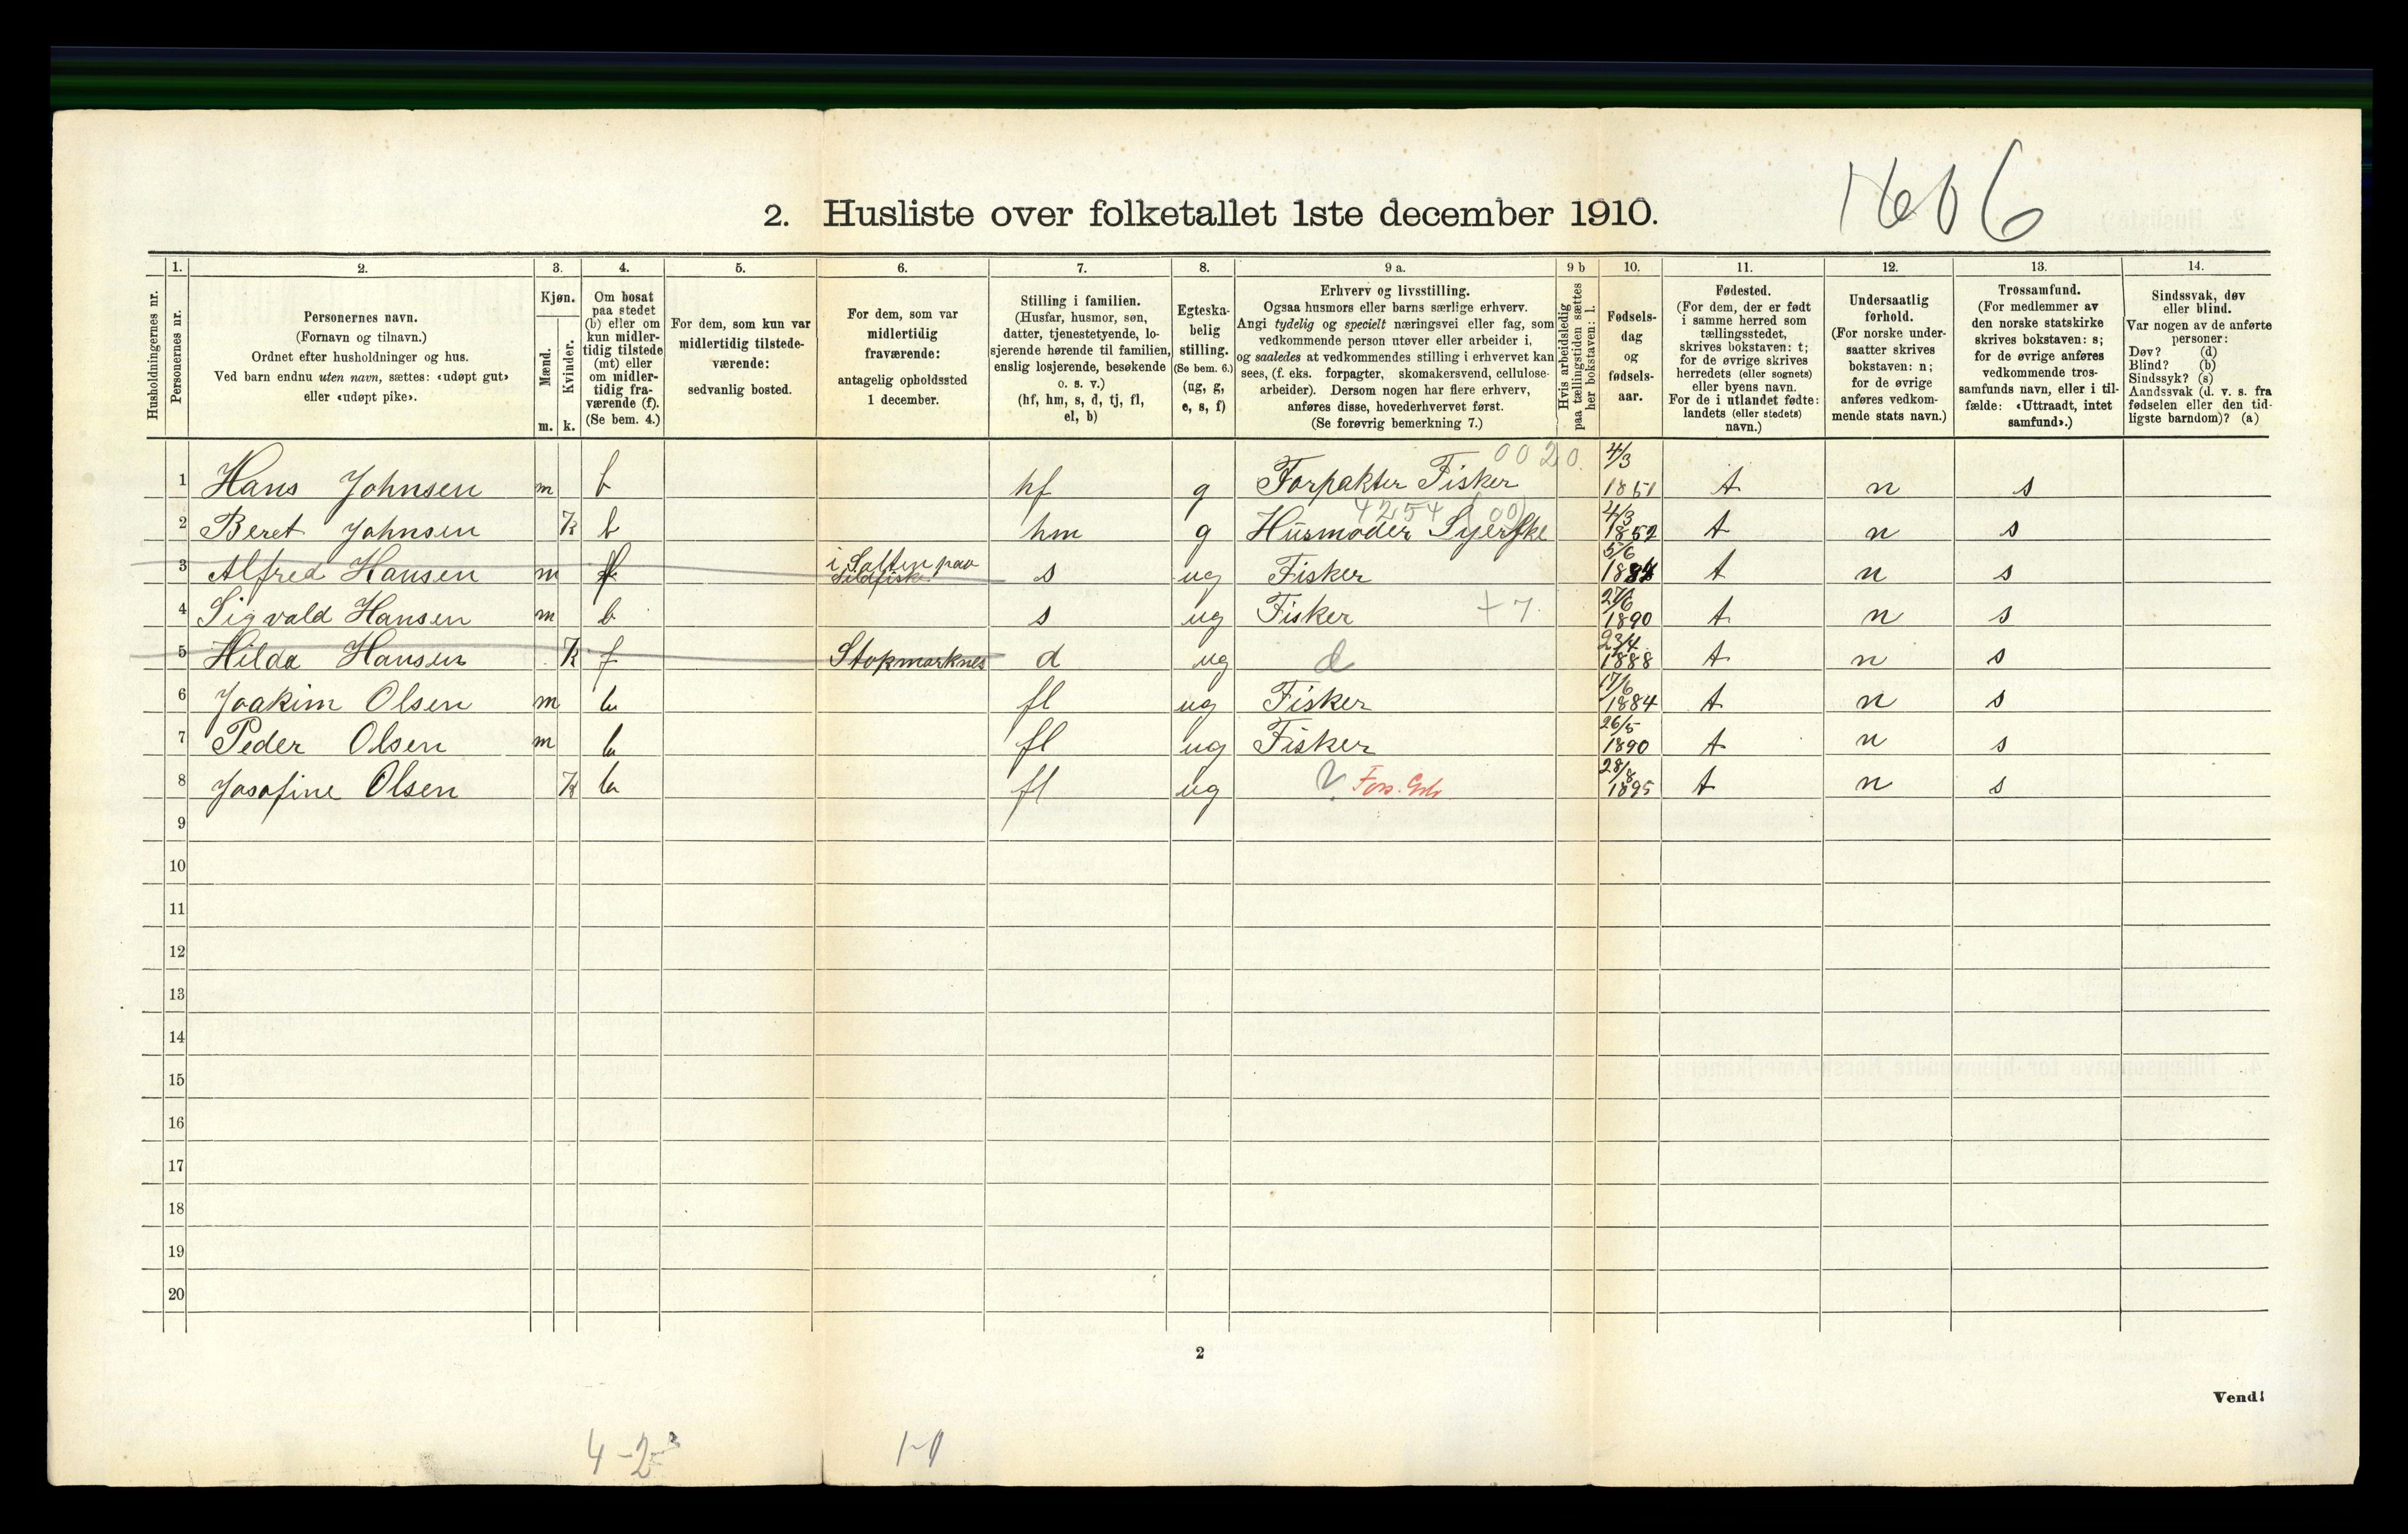 1606
2. Husliste over folketallet 1ste december 1910.
Husholdningernes nr.
1. Personernes nr.
2. Personernes navn.
(Fornavn og tilnavn.)
Ordnet efter husholdninger og hus.
Ved barn endnu uten navn, sættes: «udøpt gut»
eller «udøpt pike».
3. Kjøn.
Mænd. m.
Kvinder. k.
4. Om bosat
paa stedet
(b) eller om
kun midler-
tidig tilstede
(mt) eller
om midler-
tidig fra-
værende (f).
(Se bem. 4.)
5. For dem, som kun var
midlertidig tilstede-
værende:
sedvanlig bosted.
6. For dem, som var
midlertidig
fraværende:
antagelig opholdssted
1 december.
7. Stilling i familien.
(Husfar, husmor, søn,
datter, tjenestetyende, lo-
sjerende hørende til familien,
enslig losjerende, besøkende
o. s. v.)
(hf, hm, s, d, tj, fl,
el, b)
8. Egteska-
belig
stilling.
(Se bem. 6.)
(ug, g,
e, s, f)
9 a. Erhverv og livsstilling.
Ogsaa husmors eller barns særlige erhverv.
Angi tydelig og specielt næringsvei eller fag, som
vedkommende person utøver eller arbeider i,
og saaledes at vedkommendes stilling i erhvervet kan
sees, (f. eks. forpagter, skomakersvend, cellulose-
arbeider). Dersom nogen har flere erhverv,
anføres disse, hovederhvervet først.
(Se forøvrig bemerkning 7.)
9 b Hvis arbeidsledig
paa tællingstiden sættes
her bokstaven: l.
10. Fødsels-
dag
og
fødsels-
aar.
11. Fødested.
(For dem, der er født
i samme herred som
tællingsstedet,
skrives bokstaven: t;
for de øvrige skrives
herredets (eller sognets)
eller byens navn.
For de i utlandet fødte:
landets (eller stedets)
navn.)
12. Undersaatlig
forhold.
(For norske under-
saatter skrives
bokstaven: n;
for de øvrige
anføres vedkom-
mende stats navn.)
13. Trossamfund.
(For medlemmer av
den norske statskirke
skrives bokstaven: s;
for de øvrige anføres
vedkommende tros-
samfunds navn, eller i til-
fælde: «Uttraadt, intet
samfund».)
14. Sindssvak, døv
eller blind.
Var nogen av de anførte
personer:
Døv? (d)
Blind? (b)
Sindssyk? (s)
Aandssvak (d. v. s. fra
fødselen eller den tid-
ligste barndom)? (a)
0020
1 Hans Johnsen m b hf g Forpakter Fisker 4/3 1851 t n s
4254 (00)
2 Beret Johnsen k b hm g Husmoder Syerske 4/3 1852 t n s
3 Alfred Hansen m f i Salten paa Sildfiske s ug Fisker 5/6 t n s
4 Sigvald Hansen m b s ug Fisker +7 27/6 1890 t n s
5 Hilda Hansen k f Stokmarknes d ug d 23/4 1888 t n s
6 Joakim Olsen m b fl ug Fisker 17/6 1884 t n s
7 Peder Olsen m b fl ug Fisker 26/5 1890 t n s
8 Josofine Olsen k b fl ug 28/8 1895 t n s
9
10
11
12
13
14
15
16
17
18
19
20
2
Vend!
4-2
1-1